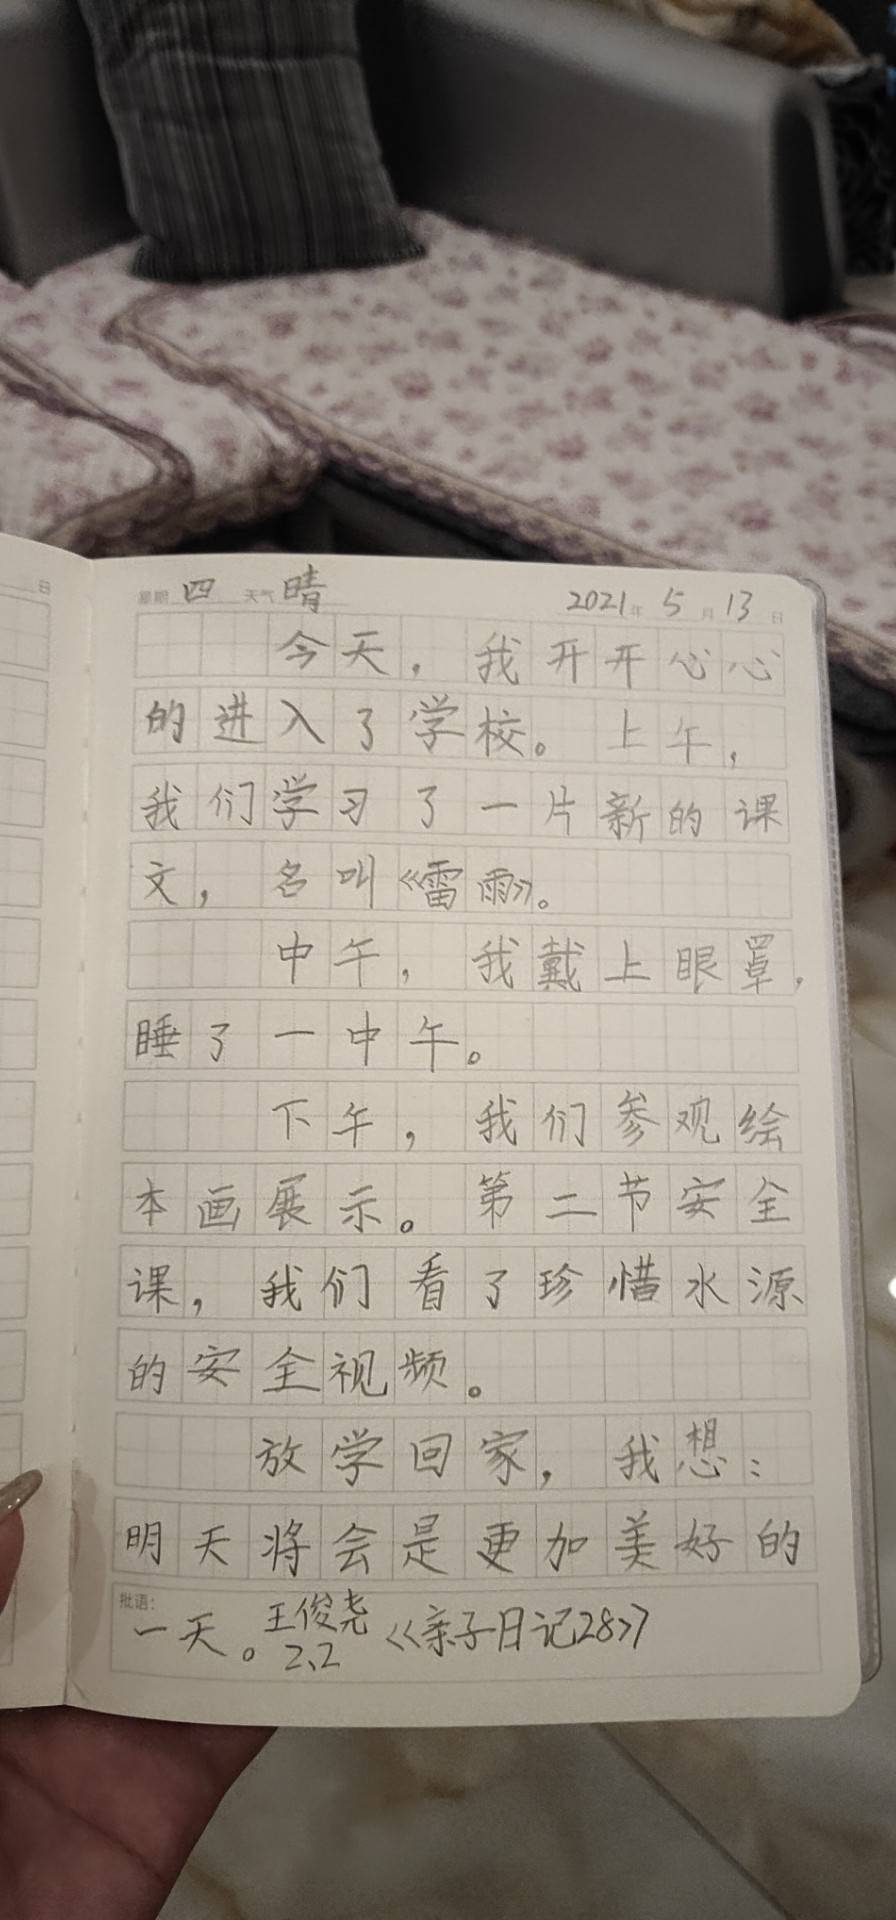 日
星期 四 天气 晴 2021年 5月 13日
今天，我开开心心
的进入了学校。上午，
我们学习了一片新的课
文，名叫《雷雨》。
中午，我戴上眼罩，
睡了一中午。
下午，我们参观绘
本画展示。第二节安全
课，我们看了珍惜水源
的安全视频。
放学回家，我想：
明天将会是更加美好的
批语：
一天。王俊尧 《亲子日记28》
2、2